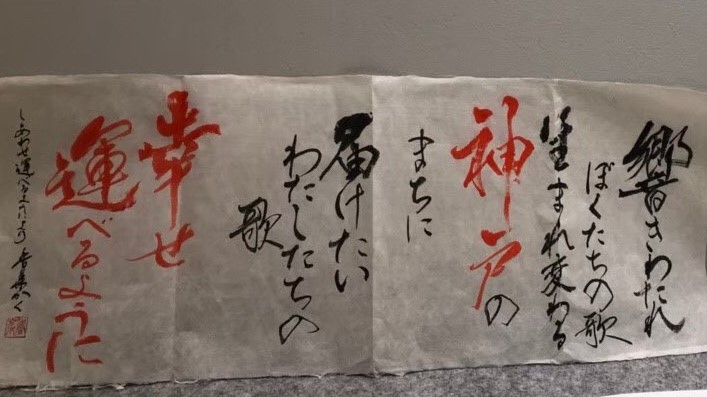 響きわたれ
ぼくたちの歌
生まれ変わる
神戸の
まちに
届けたい
わたしたちの
歌
幸せ
運べるように
しあわせ運べるように より